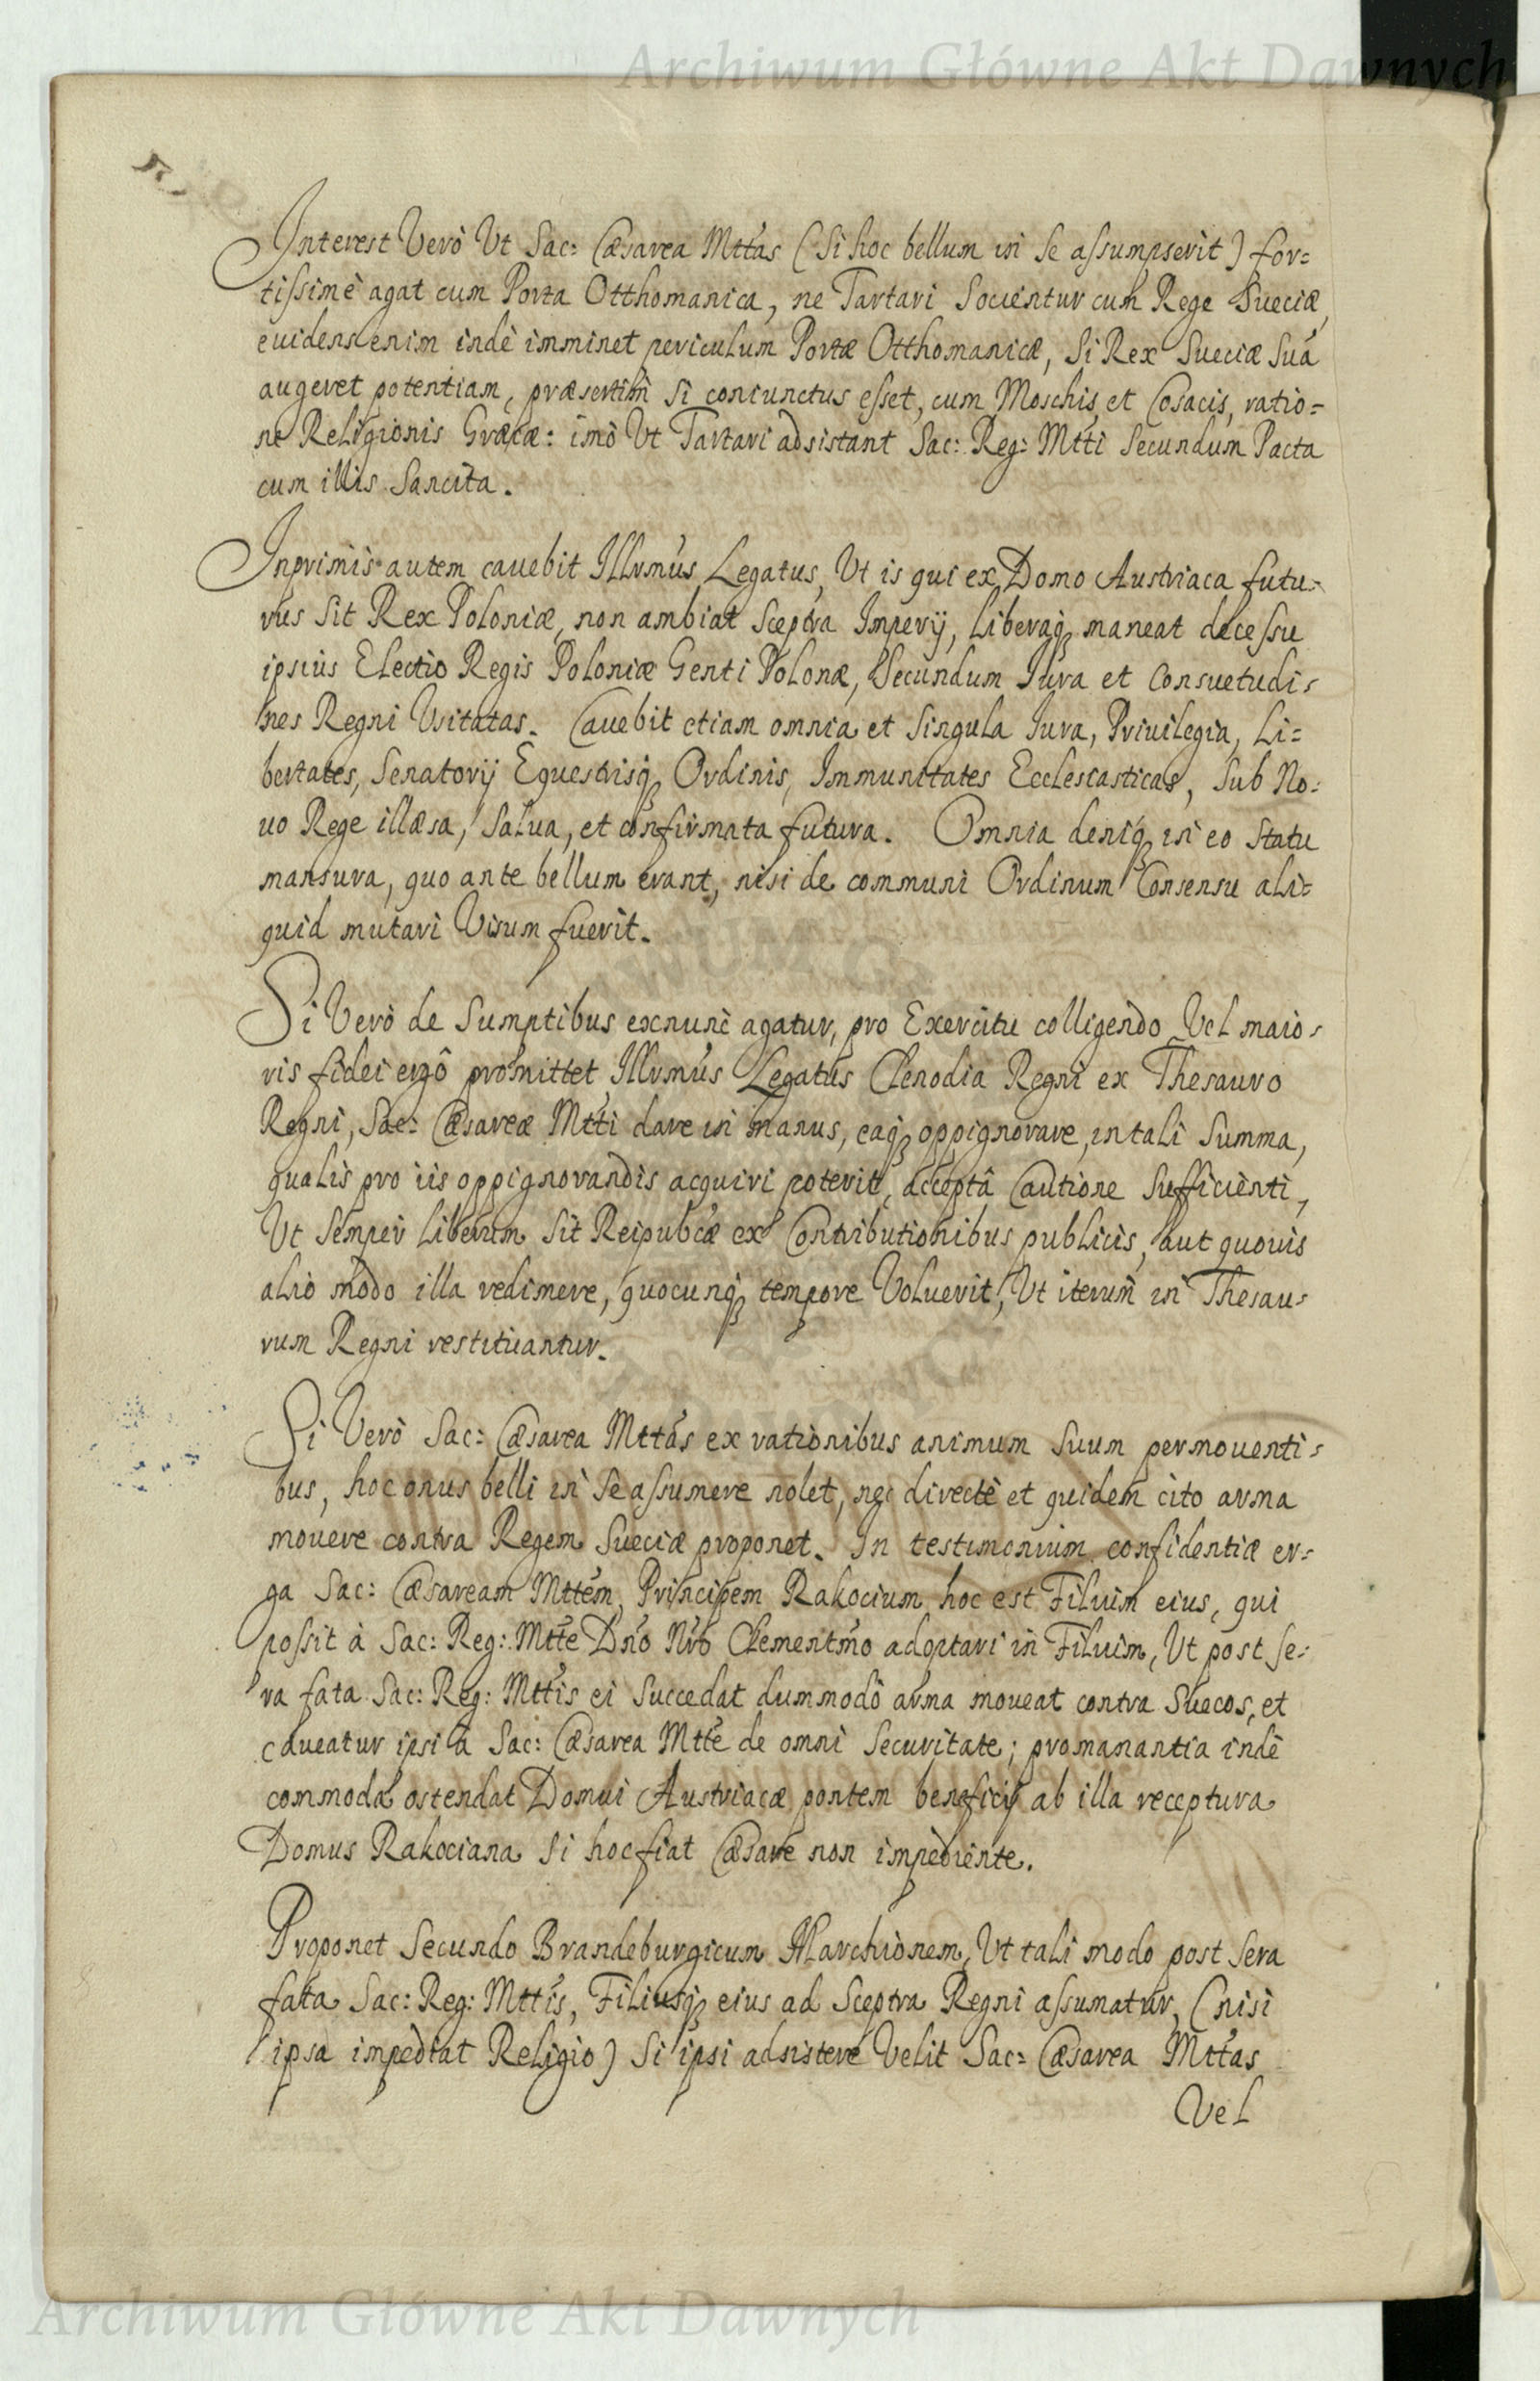 Archiwum Główne Akt Dawnych
Interest Verò Vt Sac: Cæsarea Mttas (Si hoc bellum in se assumpserit) for=
tissimè agat cum Porta Otthomanica, ne Tartari Socientur cum Rege Sueciæ,
euidens enim indè imminet periculum Portæ Otthomanicæ, Si Rex Sueciæ Suã
augeret potentiam, præsertim Si coniunctus esset, cum Moschis et Cosacis, ratio=
ne Religionis Græcæ: imò Vt Tartari adsistant Sac: Reg: Mtti Secundum Pacta
cum illis Sancita.
Inprimis autem cauebit Illrmus Legatus, Vt is qui ex Domo Austriaca futu=
rus Sit Rex Poloniæ, non ambiat Sceptra Imperij, Liberaq; maneat decessu
ipsius Electio Regis Poloniæ Genti Polonæ, Secundum Iura et Consuetudi=
nes Regni Vsitatas. Cauebit etiam omnia et Singula Iura, Priuilegia, Li=
bertates, Senatorij Equestrisq; Ordinis, Immunitates Ecclesiasticas, Sub No=
uo Rege illæsa, Salua, et confirmata futura. Omnia deniq; in eo Statu
mansura, quo ante bellum erant, nisi de communi Ordinum Consensu ali=
quid mutari Visum fuerit.
Si Verò de Sumptibus exnunc agatur, pro Exercitu colligendo Vel maio=
ris fidei ergô promittet Illrmus Legatus Clenodia Regni ex Thesauro
Regni, Sac: Cæsareæ Mtti dare in manus, eaq; oppignorare, in tali Summa,
qualis pro iis oppignorandis acquiri poterit, acceptâ Cautione Sufficienti,
Vt Semper Liberum Sit Reipubcæ ex Contributionibus publicis, aut quouis
alio modo illa redimere, quocunq; tempore Voluerit, Vt iterum in Thesau=
rum Regni restituantur.
Si Verò Sac: Cæsarea Mttas ex rationibus animum Suum permouenti=
bus, hoc onus belli in Se assumere nolet, nec directè et quidem cito arma
mouere contra Regem Sueciæ proponet. In testimonium confidentiæ er=
ga Sac: Cæsaream Mttem, Principem Rakocium hoc est Filium eius, qui
possit à Sac: Reg: Mtte Dno Nro Clementmo adoptari in Filium, Vt post Se=
ra fata Sac: Reg: Mttis ei Succedat dummodò arma moueat contra Suecos, et
caueatur ipsi a Sac: Cæsarea Mtte de omni Securitate; promanantia indè
commoda ostendat Domui Austriacæ pontem beneficij ab illa receptura
Domus Rakociana Si hoc fiat Cæsare non impediente.
Proponet Secundo Brandeburgicum Marchionem, Vt tali modo post Sera
fata Sac: Reg: Mttis, Filiusq; eius ad Sceptra Regni assumatur, (nisi
ipsa impediat Religio) Si ipsi adsistere Velit Sac: Cæsarea Mttas
Vel
Archiwum Główne Akt Dawnych